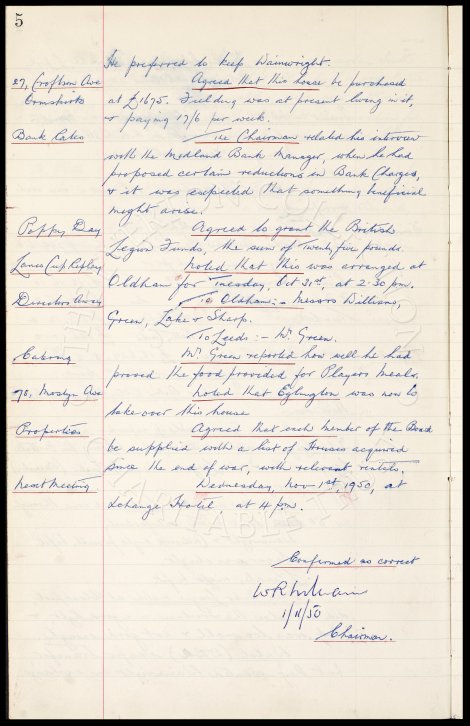 5
He preferred to keep Wainwright.
27, Croftson Ave
Ormskirk
Agreed that this house be purchased
at £1675. Fielding was at present living in it,
& paying 17/6 per week.
Bank Rates
The Chairman related his interview
with the Midland Bank Manager, when he had
proposed certain reductions in Bank Charges,
& it was expected that something beneficial
might arise.
Poppy Day
Agreed to grant the British
Legion Funds, the sum of Twenty five pounds.
Lancs Cup Replay
Noted that this was arranged at
Oldham for Tuesday, Oct 31st, at 2.30 pm.
Directors Away
To Oldham:- Messrs Williams,
Green, Lake & Sharp.
To Leeds:- Mr. Green.
Catering
Mr. Green reported how well he had
proved the food provided for Players Meals.
78, Mostyn Ave
Noted that Eglington was now to
take over this house
Properties
Agreed that each member of the Board
be supplied with a list of Houses acquired
since the end of war, with relevant rentals.
Next Meeting
Wednesday, Nov 1st, 1950, at
Exchange Hotel, at 4 pm.
Confirmed as correct
W R Williams
1/11/50
Chairman.